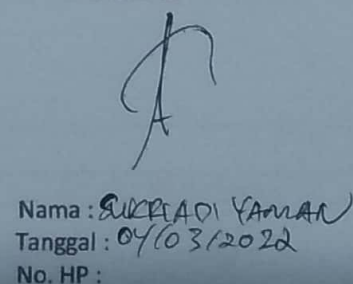 Nama : SUKRIADI YAMAN
Tanggal : 04/03/2022
No. HP :